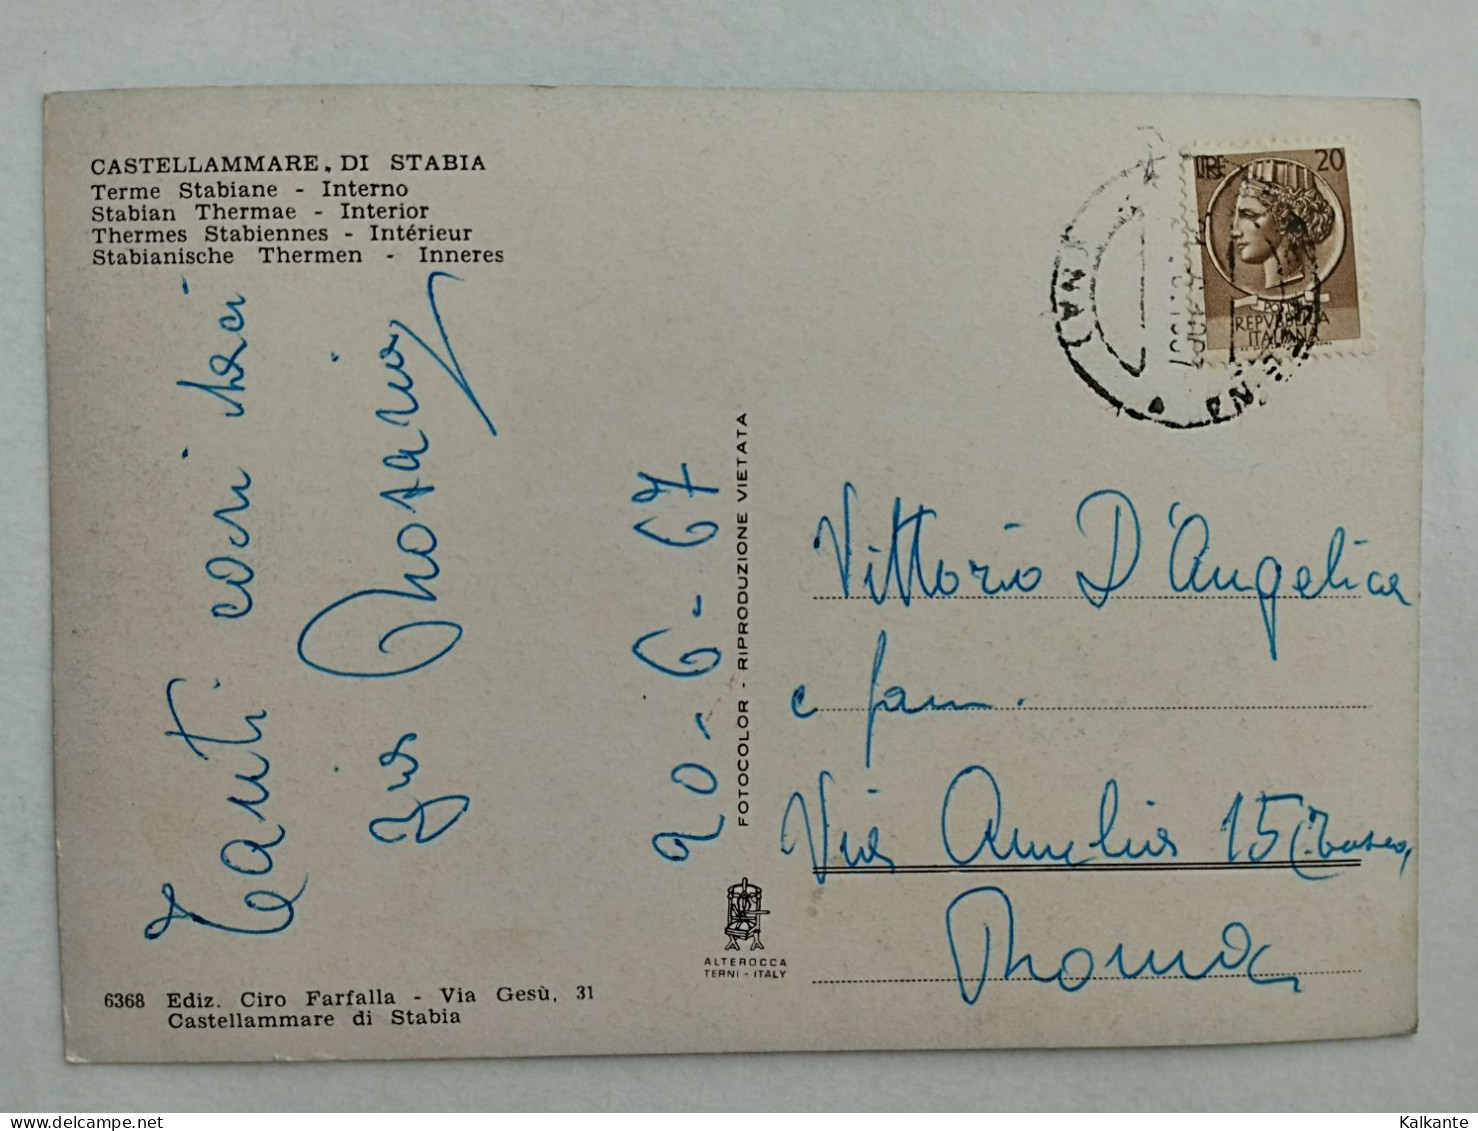 CASTELLAMMARE DI STABIA
Terme Stabiane - Interno
Stabian Thermae - Interior
Thermes Stabiennes - Intérieur
Stabianische Thermen - Inneres
Tanti cari baci
Zia Rosaria
20-6-67
FOTOCOLOR - RIPRODUZIONE VIETATA
LIRE 20
POSTE
REPVBBLICA
ITALIANA
(NA)
Vittorio D'Angelica
e fam.
Via Aurelia 15
Roma
ALTEROCCA
TERNI - ITALY
6368 Ediz. Ciro Farfalla - Via Gesù, 31
Castellammare di Stabia
Kalkante